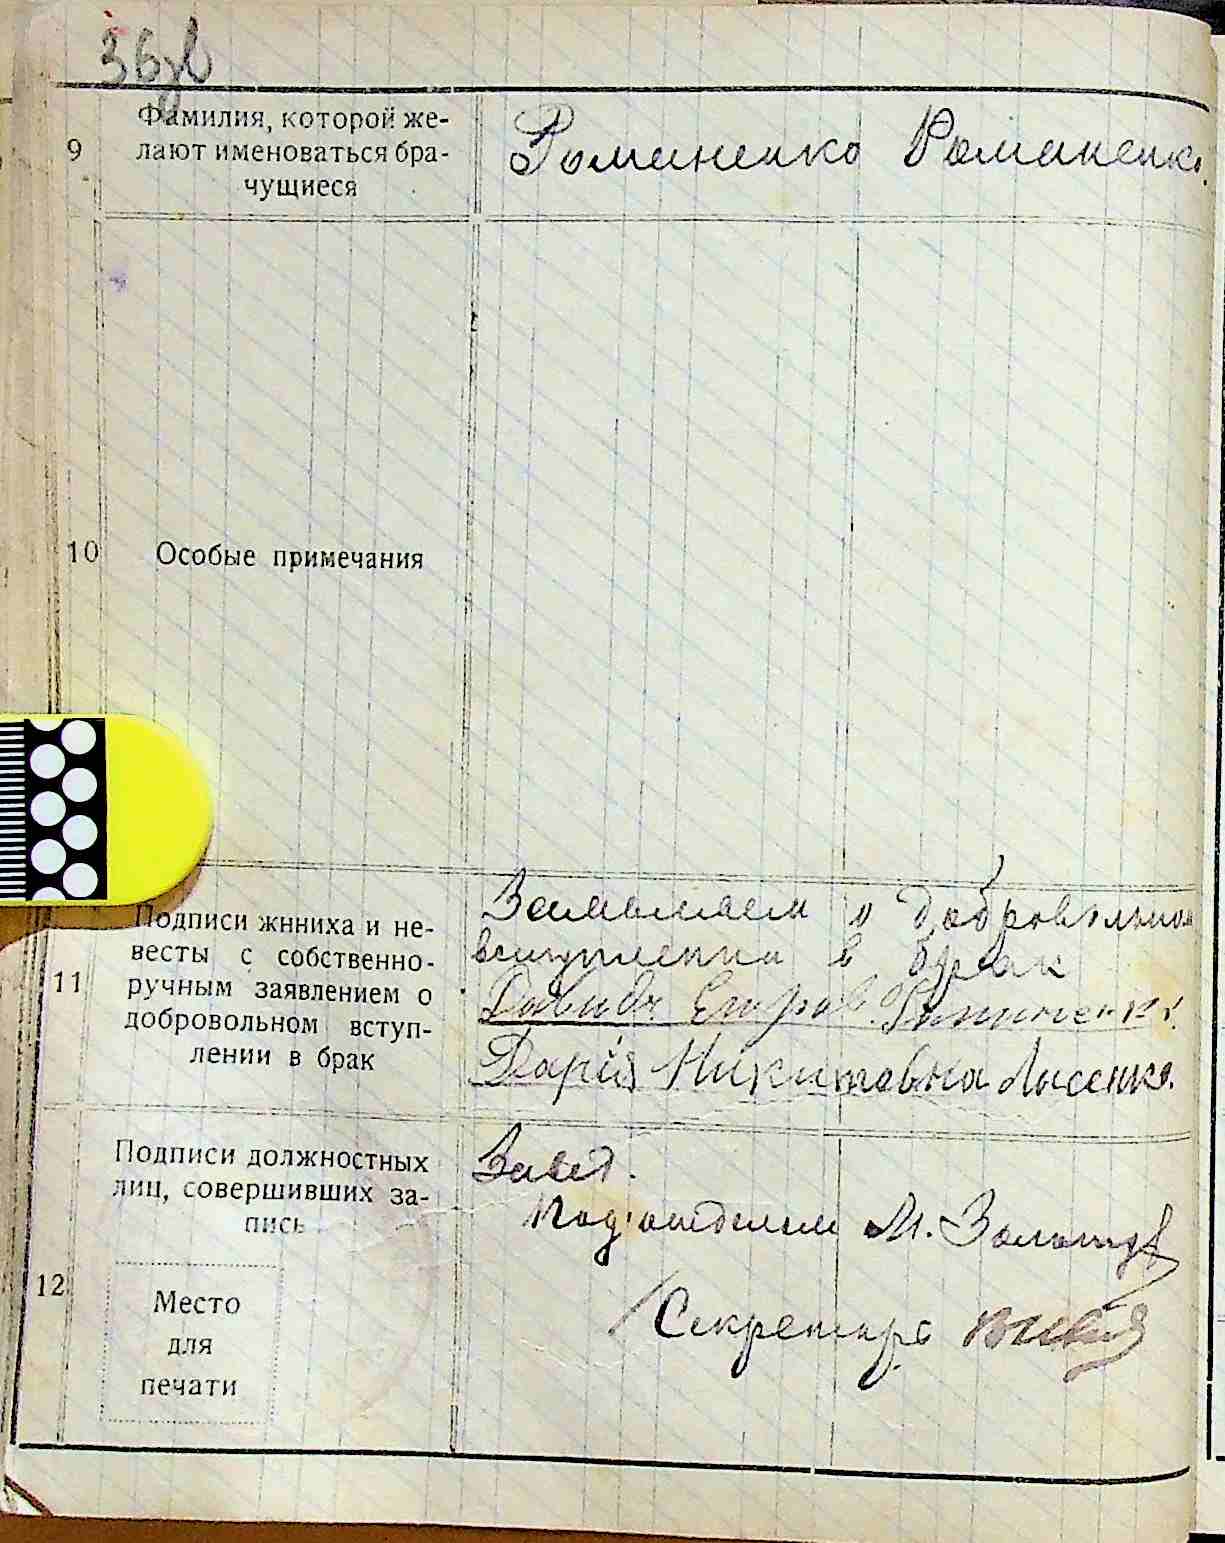 36
9 Фамилия, которой же-
лают именоваться бра-
чущиеся
Романенко Романенко.
10 Особые примечания
11 Подписи жниха и не-
весты с собственно-
ручным заявлением о
добровольном вступ-
лении в брак
Заявляем о добровольном
вступлении в брак
Давидъ Егоров. Романенко.
Дарія Никитовна Лысенко.
12 Подписи должностных
лиц, совершивших за-
пись
Место
для
печати
Завед.
Под'отделом М. Золот
Секретарь